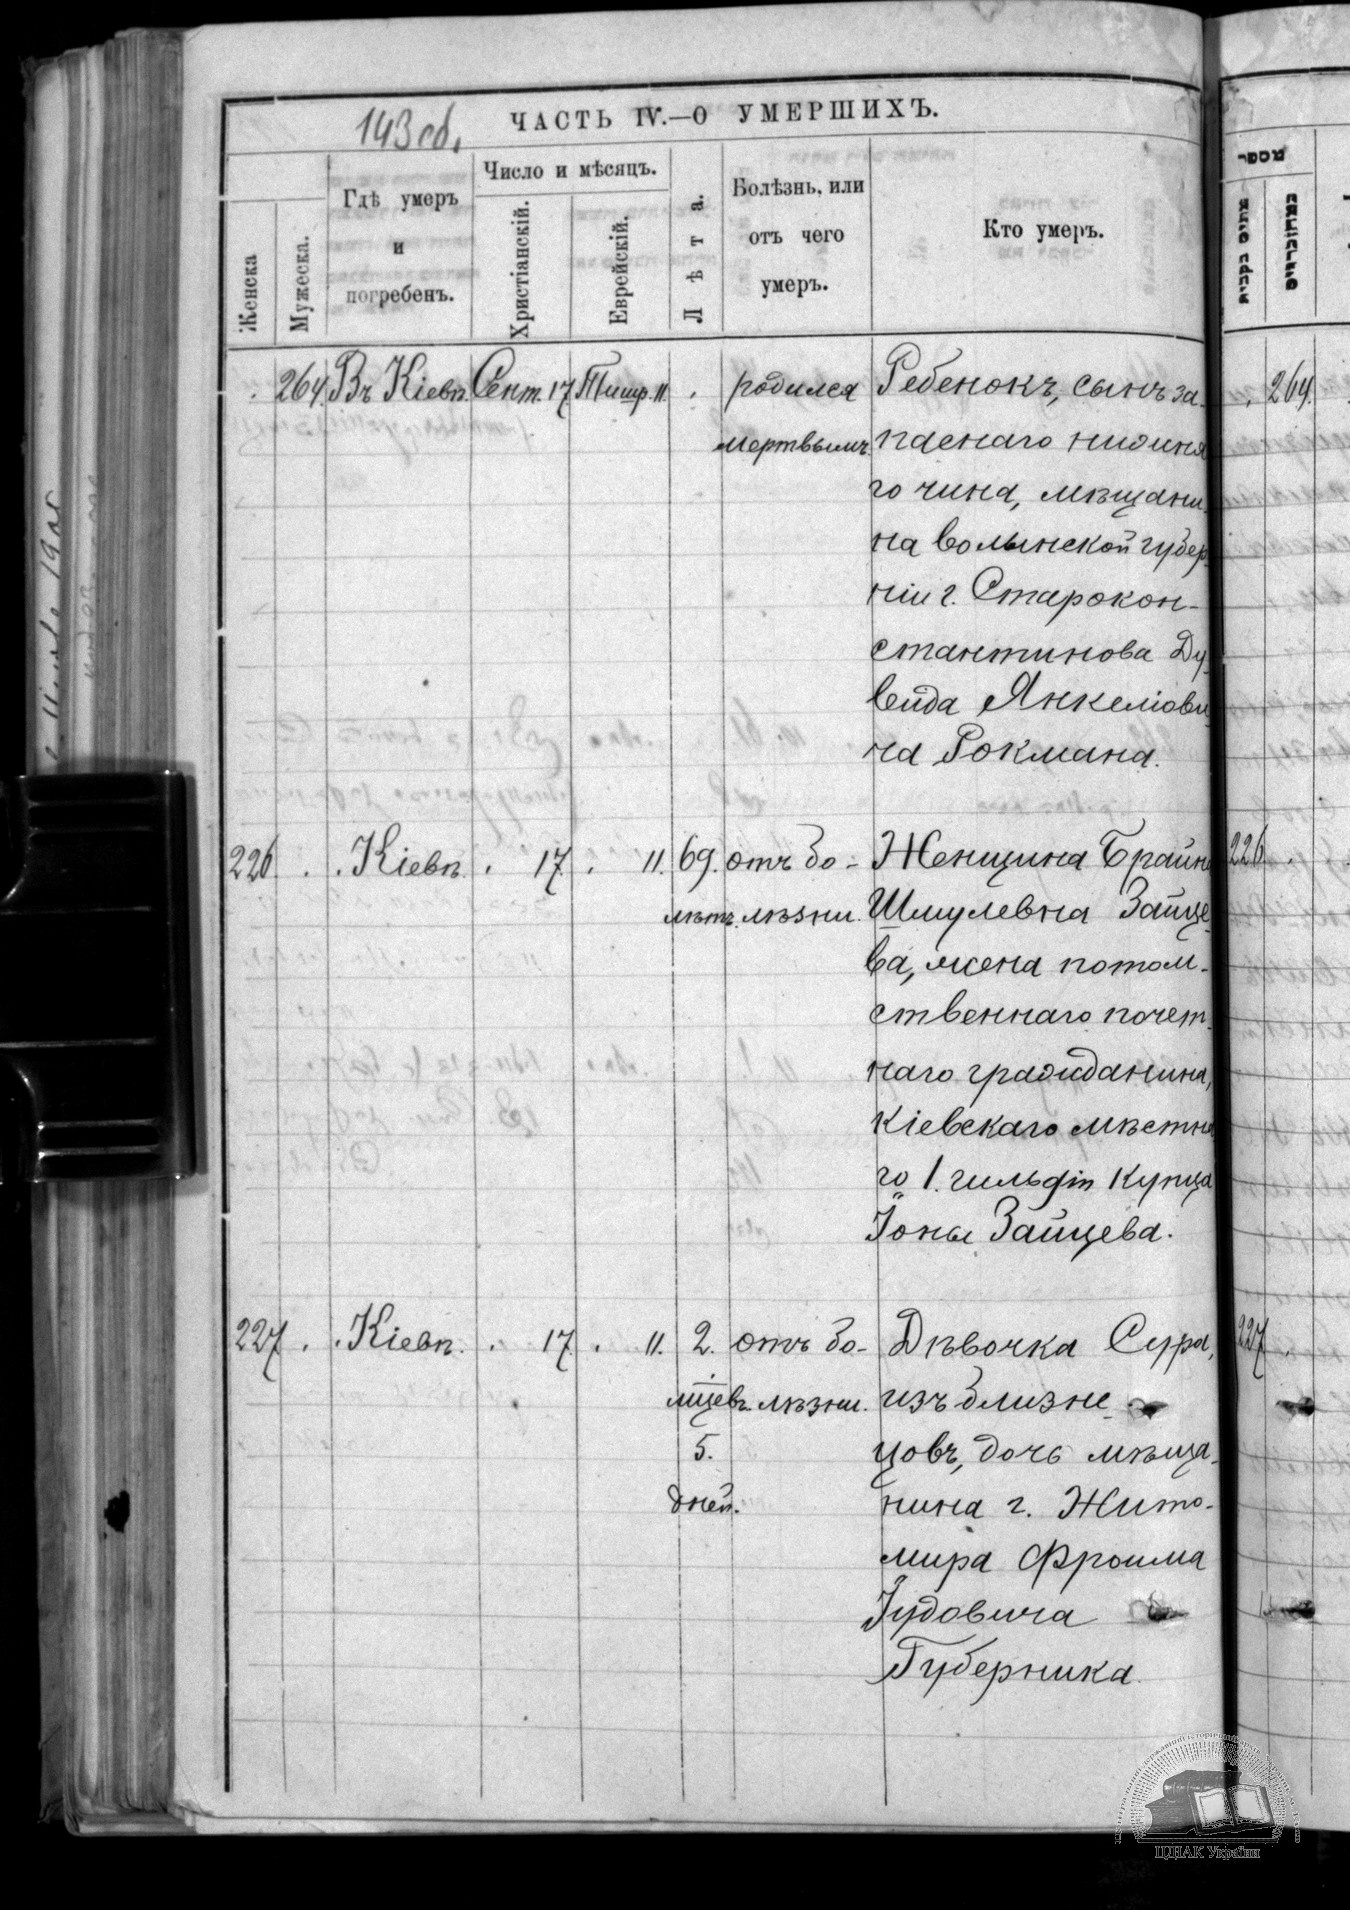 143 об.
ЧАСТЬ IV.—О УМЕРШИХЪ.
Женска
Мужеска.
Гдѣ умеръ
и
погребенъ.
Число и мѣсяцъ.
Христіанскій.
Еврейскій.
Лѣта.
Болѣзнь, или
отъ чего
умеръ.
Кто умеръ.
מספר
264. Въ Кіевѣ. Сент. 17 Тишр. 11. родился Ребенокъ, сынъ за-
мертвымъ паснаго нижня
го чина, мѣщани-
на Волынской губер-
ніи г. Старокон-
стантинова Ду-
вида Янкеліови-
ча Рокмана.
226 Кіевѣ. 17 11. 69. отъ бо- Женщина Брайна
лѣтъ. лѣзни. Шмулевна Зайце-
ва, жена потом-
ственнаго почет-
наго гражданина,
Кіевскаго мѣстна
го 1. гильдіи купца
Іоны Зайцева.
227 Кіевѣ. 17. 11. 2. отъ бо- Дѣвочка Сура,
мѣсцевъ. лѣзни. изъ близне-
5. цовъ, дочь мѣща-
дней. нина г. Жито-
мира Фроима
Іудовича
Губерника.
264.
226
227
ЦДІАК України